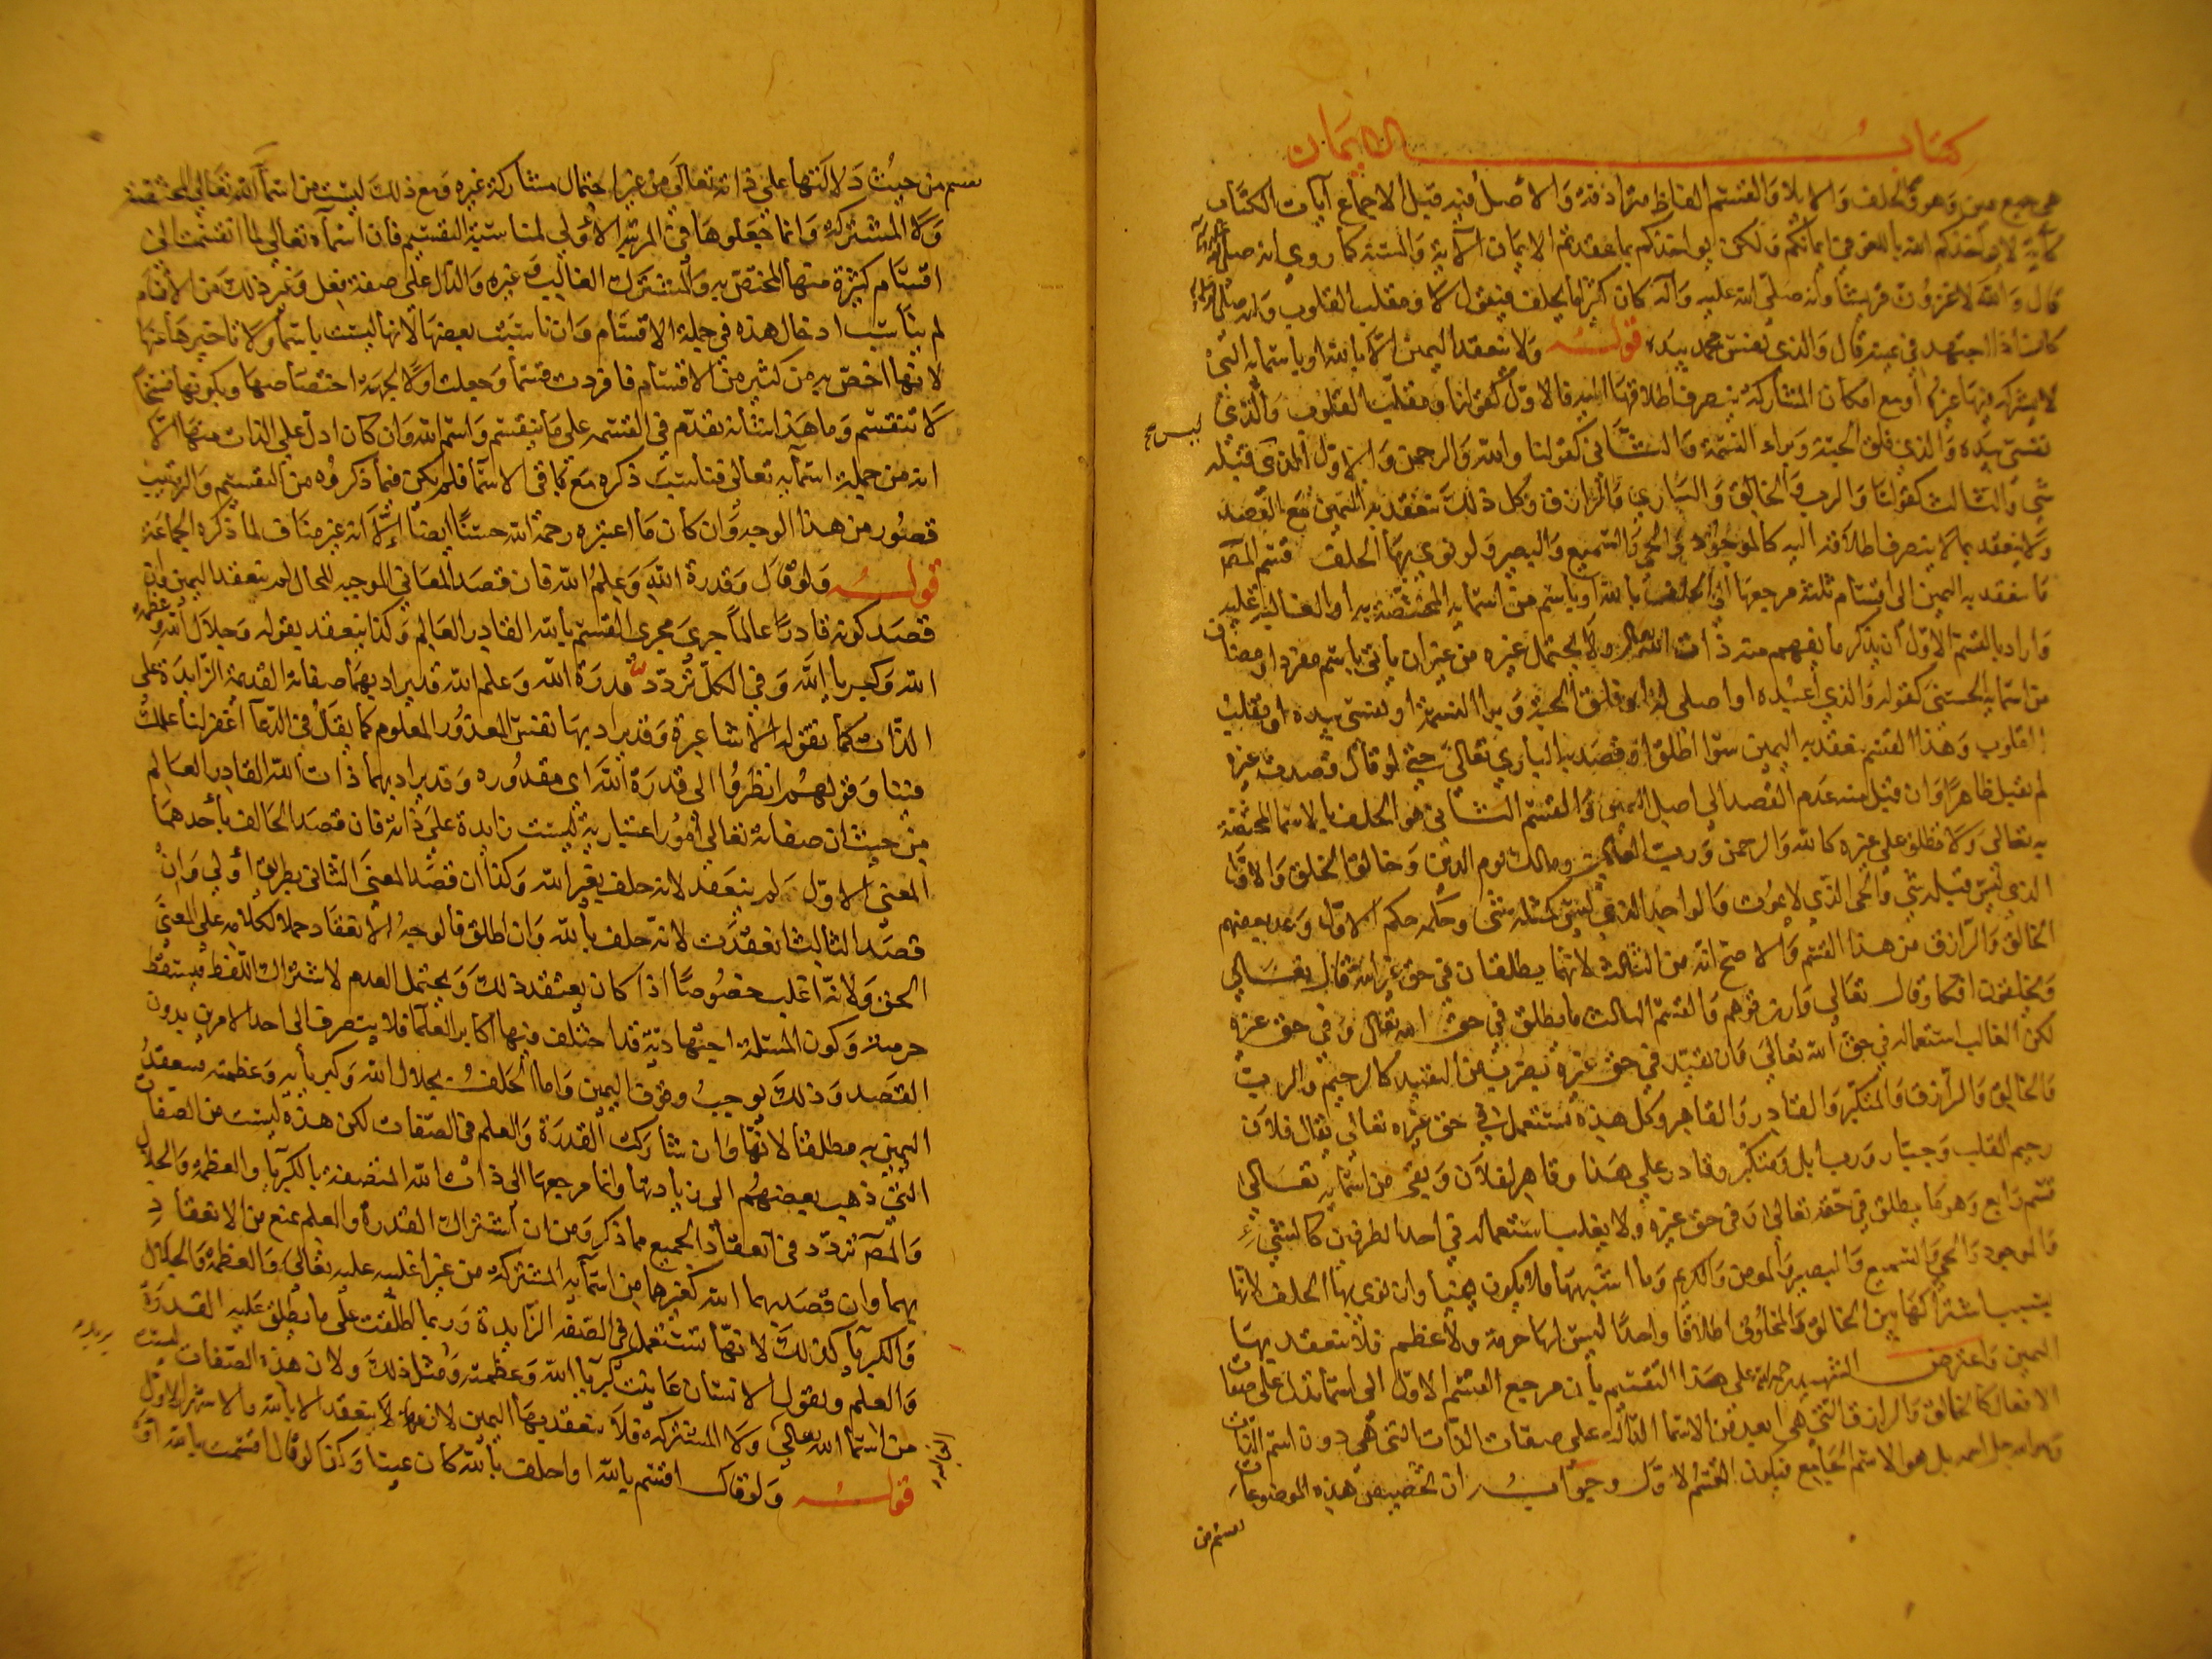 كتاب الايمان
هي جمع يمين وهو والحلف والايلا والقسم الفاظ مترادفة والاصل فيه قبل الاجماع آيات الكتاب
كآية لا يواخذكم الله باللغو في ايمانكم ولكن يواخذكم بما عقدتم الايمان الآية والسنة كما روي انه صلى الله عليه وآله
قال والله لاغزون قريشا وانه صلى الله عليه وآله كان كثيرا ما يحلف فيقول لا ومقلب القلوب وانه صلى الله عليه وآله
كان اذا اجتهد في يمينه قال والذي نفس محمد بيده قوله ولا ينعقد اليمين الا بالله او باسمائه التي
لا يشركه فيها غيره او مع امكان المشاركة ينصرف اطلاقها اليه فالاول كقولنا ومقلب القلوب والذي
نفسي بيده والذي فلق الحبة وبراء النسمة والثاني كقولنا والله والرحمن والاول الذي ليس قبله
شي والثالث كقولنا والرب والخالق والباري والرازق وكل ذلك تنعقد به اليمين مع القصد
ولا ينعقد بما لا ينصرف اطلاقه اليه كالموجود والحي والسميع والبصير ولو نوى بها الحلف قسم المص
ما ينعقد به اليمين الى اقسام ثلثة مرجعها الى الحلف بالله او باسم من اسمائه المختصة به او الغالبة عليه
واراد بالقسم الاول ان يذكر ما يفهم منه ذات الله تعالى ولا يحتمل غيره من غير ان ياتي باسم مفرد او مضاف
من اسمائه الحسنى كقوله والذي اعبده او اصلي له او فلق الحبة وبرا النسمة او نفسي بيده او مقلب
القلوب وهذا القسم تنعقد به اليمين سوا اطلق او قصد به الباري تعالى حتى لو قال قصدت غيره
لم يقبل ظاهرا وان قبل منه عدم القصد الى اصل اليمين والقسم الثاني هو الحلف بالاسما المختصة
به تعالى ولا تطلق على غيره كالله والرحمن ورب العالمين ومالك يوم الدين وخالق الخلق والاول
الذي ليس قبله شي والحي الذي لا يموت والواحد الذي ليس كمثله شي وحكمه حكم الاول وعد بعضهم
الخالق والرازق من هذا القسم والاصح انه من الثالث لانهما يطلقان في حق غير الله قال تعالى
وتخلقون افكا وقال تعالى وارزقوهم والقسم الثالث ما يطلق في حق الله تعالى وفي حق غيره
لكن الغالب استعماله في حق الله تعالى وان تقيد في حق غيره بضرب من التقييد كالرحيم والرب
والخالق والرازق والمتكبر والقادر والقاهر وكل هذه تستعمل في حق غيره تعالى يقال فلان
رحيم القلب وجبار ورب ابل ومتكبر وقادر على هذا وقاهر لفلان وبقي من اسمائه تعالى
قسم رابع وهو ما يطلق في حقه تعالى وفي حق غيره ولا يغلب استعماله في احد الطرفين كالشيء
والموجود والحي والسميع والبصير والمومن والكريم وما اشبهها فلا يكون يمينا وان نوى بها الحلف لانها
بسبب اشتراكها بين الخالق والمخلوق اطلاقا واحدا ليس لها حرمة ولا عظم فلا تنعقد بها
اليمين واعترض الشهيد رحمه الله على هذا التقسيم بان مرجع القسم الاول الى اسما تدل على صفات
الافعال كالخالق والرازق التي هي ابعد من الاسما الدالة على صفات الذات التي هي دون اسم الذات
وهو الله جل اسمه بل هو الاسم الجامع فيكون القسم الاول وجوابه ان تخصيص هذه الموضوعات
بقسم من
بقسم من حيث دلالتها على ذاته تعالى من غير احتمال مشاركة غيره ومع ذلك ليست من اسماء الله تعالى المختصة
ولا المشتركة وانما جعلوها في المرتبة الاولى لمناسبة التقسيم فان اسماه تعالى لما انقسمت الى
اقسام كثيرة منها المختص به والمشترك الغالب وغيره والدال على صفة فعل وغير ذلك من الاقسام
لم يناسب ادخال هذه في جملة الاقسام وان ناسبت بعضها لانها ليست باسما ولا تاخيرها عنها
لانها اخص به من كثير من الاقسام فافردت قسما وجعلت اولا لجهة اختصاصها وبكونها قسما
لا تنقسم وما هذا شانه تقدم في القسمة على ما ينقسم واسم الله وان كان ادل على الذات منها الا
انه من جملة اسمائه تعالى فناسب ذكره مع باقي الاسما فلم يكن فيما ذكروه من التقسيم والترتيب
قصور من هذا الوجه وان كان ما اعتبره رحمه الله حسنا ايضا الا انه غير مناف لما ذكره الجماعة
قوله ولو قال وقدرة الله وعلم الله فان قصد المعاني الموجبة للحال لم تنعقد اليمين وان
قصد كونه قادرا عالما جرى مجرى القسم بالله القادر العالم وكذا ينعقد بقوله وجلال الله وعظمة
الله وكبرياء الله وفي الكل تردد قدرة الله وعلم الله قد يراد بهما صفاته القديمة الزايدة على
الذات كما تقوله الاشاعرة وقد يراد بها نفس المقدور والمعلوم كما يقال في الدعا اغفر لنا علمك
فينا وقولهم انظروا الى قدرة الله اى مقدوره وقد يراد بهما ذات الله القادر العالم
من حيث ان صفاته تعالى امور اعتبارية ليست زايدة على ذاته فان قصد الحالف بأحدهما
المعنى الاول لم ينعقد لانه حلف بغير الله وكذا ان قصد المعنى الثاني بطريق اولى وان
قصد الثالث انعقدت لانه حلف بالله وان اطلق فالوجه الانعقاد حملا لكلامه على المعنى
الحق ولانه اغلب خصوصا اذا كان يعتقد ذلك ويحتمل العدم لاشتراك اللفظ فيسقط
حرمته وكون المسئلة اجتهادية قد اختلف فيها اكابر العلما فلا ينصرف الى احد الامرين بدون
القصد وذلك يوجب وقوف اليمين واما الحلف بجلال الله وكبريائه وعظمته فينعقد
اليمين به مطلقا لانها وان شاركت القدرة والعلم في الصفات لكن هذه ليست من الصفات
التي ذهب بعضهم الى زيادتها وانما مرجعها الى ذات الله المتصفة بالكبريا والعظمة والجلال
والمص تردد في انعقاد الجميع مما ذكر ومن ان اشتراك القدرة والعلم يمنع من الانعقاد
بهما وان قصد بهما الله كغيرهما من اسمائه المشتركة من غير اغلبية عليه تعالى والعظمة والجلال
والكبريا كذلك لانها تستعمل في الصفة الزايدة وربما اطلقت على ما يطلق عليه القدرة
والعلم ويقول الانسان عاينت كبريا الله وعظمته ومثل ذلك ولان هذه الصفات ليست
من اسما الله تعالى ولا المشتركة فلا تنعقد بها اليمين لانها لا ينعقد الا بالله والاشهر الاول
قوله ولو قال اقسم بالله او احلف بالله كان يمينا وكذا لو قال اقسمت بالله او